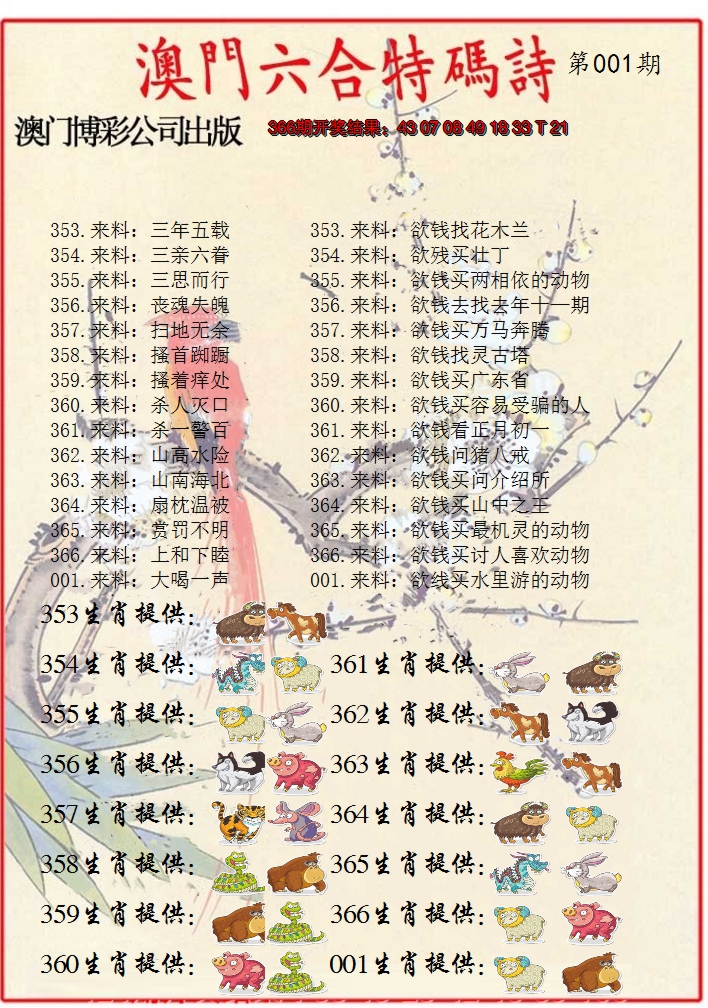 澳門六合特碼詩 第001期
澳门博彩公司出版 366期开奖结果：43 07 08 49 18 33 T 21
353.来料：三年五载 353.来料：欲钱找花木兰
354.来料：三亲六眷 354.来料：欲残买壮丁
355.来料：三思而行 355.来料：欲钱买两相依的动物
356.来料：丧魂失魄 356.来料：欲钱去找去年十一期
357.来料：扫地无余 357.来料：欲钱买万马奔腾
358.来料：搔首踟蹰 358.来料：欲钱找灵古塔
359.来料：搔着痒处 359.来料：欲钱买广东省
360.来料：杀人灭口 360.来料：欲钱买容易受骗的人
361.来料：杀一警百 361.来料：欲钱看正月初一
362.来料：山高水险 362.来料：欲钱问猪八戒
363.来料：山南海北 363.来料：欲钱买问介绍所
364.来料：扇枕温被 364.来料：欲钱买山中之王
365.来料：赏罚不明 365.来料：欲钱买最机灵的动物
366.来料：上和下睦 366.来料：欲钱买讨人喜欢动物
001.来料：大喝一声 001.来料：欲线买水里游的动物
353生肖提供：
354生肖提供： 361生肖提供：
355生肖提供： 362生肖提供：
356生肖提供： 363生肖提供：
357生肖提供： 364生肖提供：
358生肖提供： 365生肖提供：
359生肖提供： 366生肖提供：
360生肖提供： 001生肖提供：